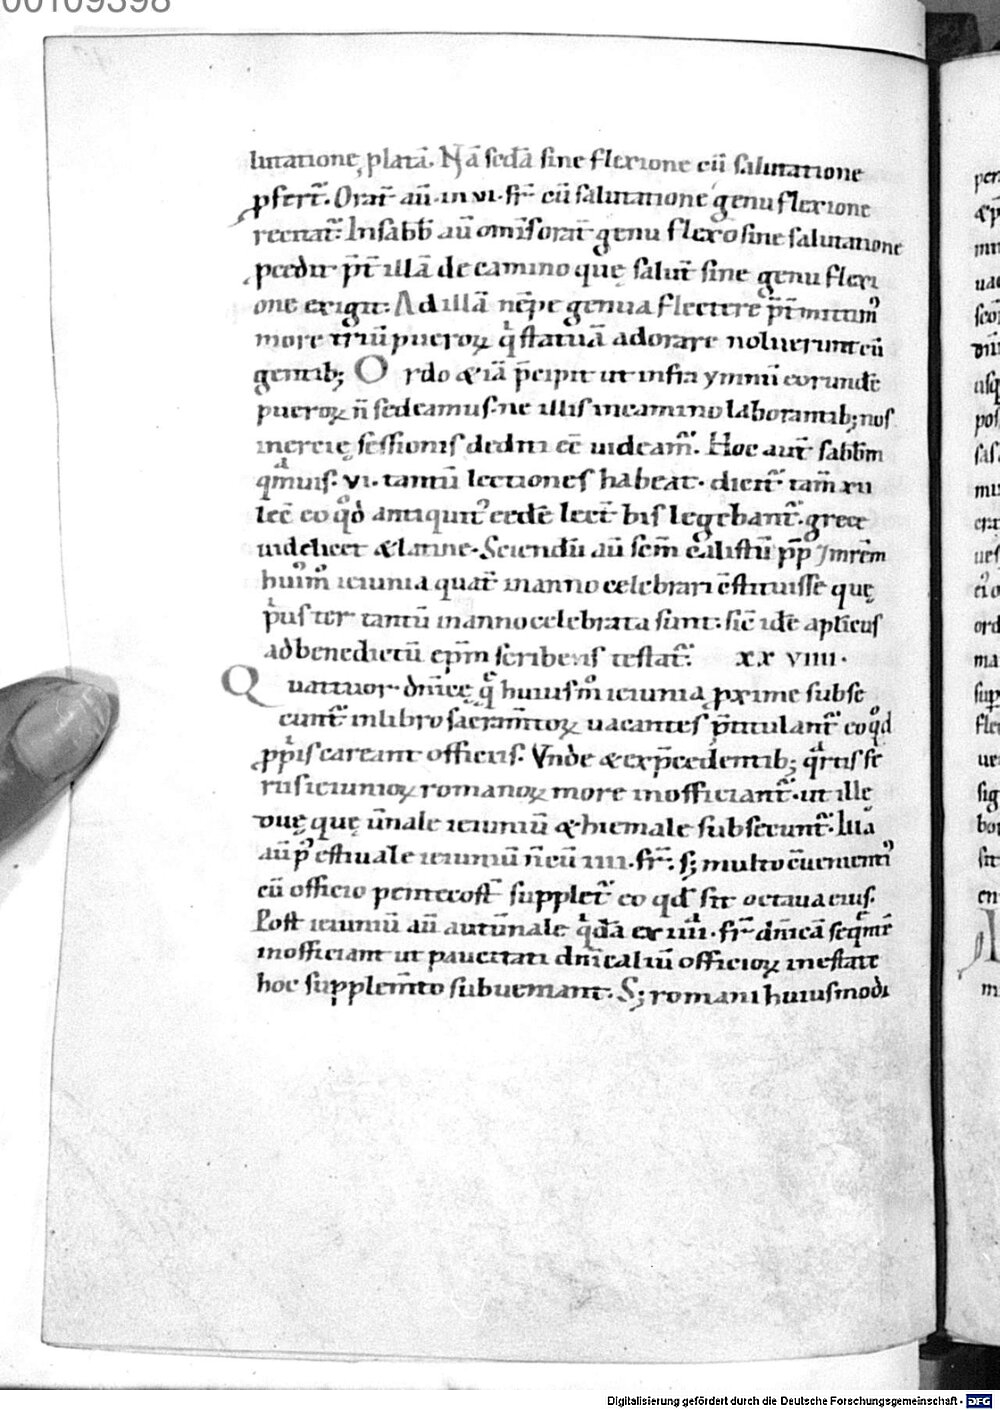 00109398
lutatione platā. Nā sedā sine flexione cū salutatione
ꝓfert᷑. Orat᷑ aū in vi. fr̄. cū salutatione genu flexione
recitat᷑. In sabb̄ aū om̄is orat᷑ genu flexo sine salutatione
p̄cedit p̄t illā de camino quę salut᷑ sine genu flexi
one exigit. Ad illā nēpe genua flectere p̄t mittimꝰ
more triū pueroꝝ q̇ statuā adorare noluerunt cū
gentib; Ordo & iā p̄cipit ut infra ymnū eorundē
pueroꝝ n̄ sedeamus. ne illis in camino laborantib; nos
inercię sessionis dediti eē uideam᷑. Hoc aut᷑ sabb̄m
qͣmuis. vi. tantū lectiones habeat. dicit᷑ tam̄ xii
lec̄ eo qͦd antiquitꝰ eędē lect̄ bis legebant᷑. grece
uidelicet & latine. Sciendū aū sc̄m calistū pp̄
huiꝰm̊ ieiunia quat᷑ in anno celebrari c̄stituisse quę
pͥus ter tantū in anno celebrata sunt. sic̄ idē apl̄icus
ad benedictū ep̄m scribens testat᷑. xx viiii.
Quattuor dn̄icę q̄ huiusm̊ ieiunia ꝓxime subse
cunt᷑ in libro sacram̄toꝝ uacantes p̄titulant᷑ eo qͦd
ꝓpͥis careant officiis. Vnde & ex p̄cedentib; qͣrtis fe
riis ieiunioꝝ romanoꝝ more inofficiant᷑. ut illę
duę quę ūnale ieiuniū & hiemale subsecunt᷑. Illā
aū pꝰ estiuale ieiuniū n̄ cū iiii. fr̄. s; multo c̄uenientiꝰ
cū officio pentecost̄ supplet᷑ eo qd̄ sit octaua eius.
Post ieiuniū aū autūnale qͥdā ex iiii. fr̄ dn̄icā seqͣntē
inofficiant ut paucitati dn̄icaliū officioꝝ in estate
hoc supplem̄to subueniant. S; romani huiusmodi
Digitalisierung gefördert durch die Deutsche Forschungsgemeinschaft - DFG